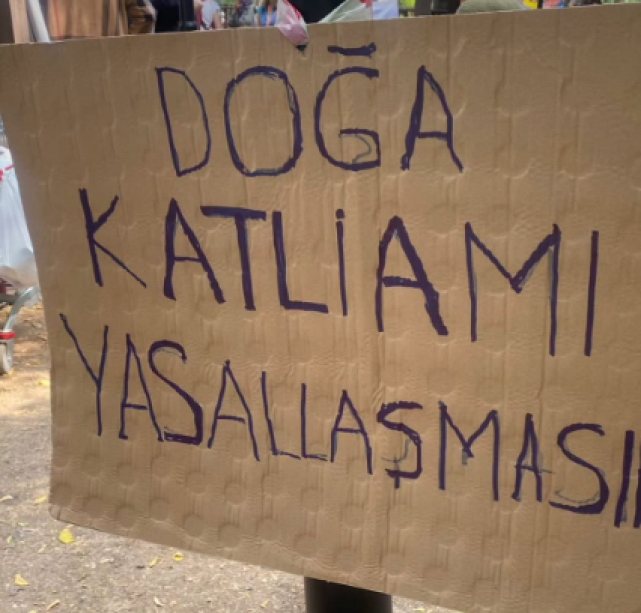 DOĞA
KATLİAMI
YASALLAŞMASI